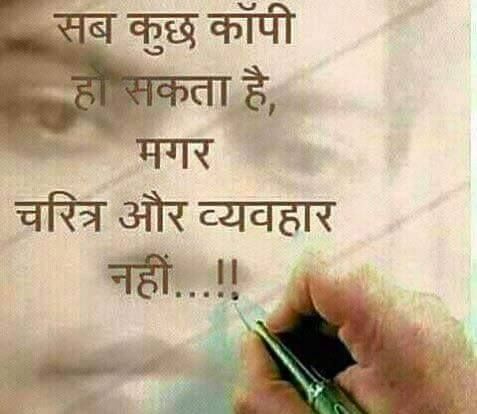 सब कुछ कॉपी
हो सकता है,
मगर
चरित्र और व्यवहार
नहीं...!!